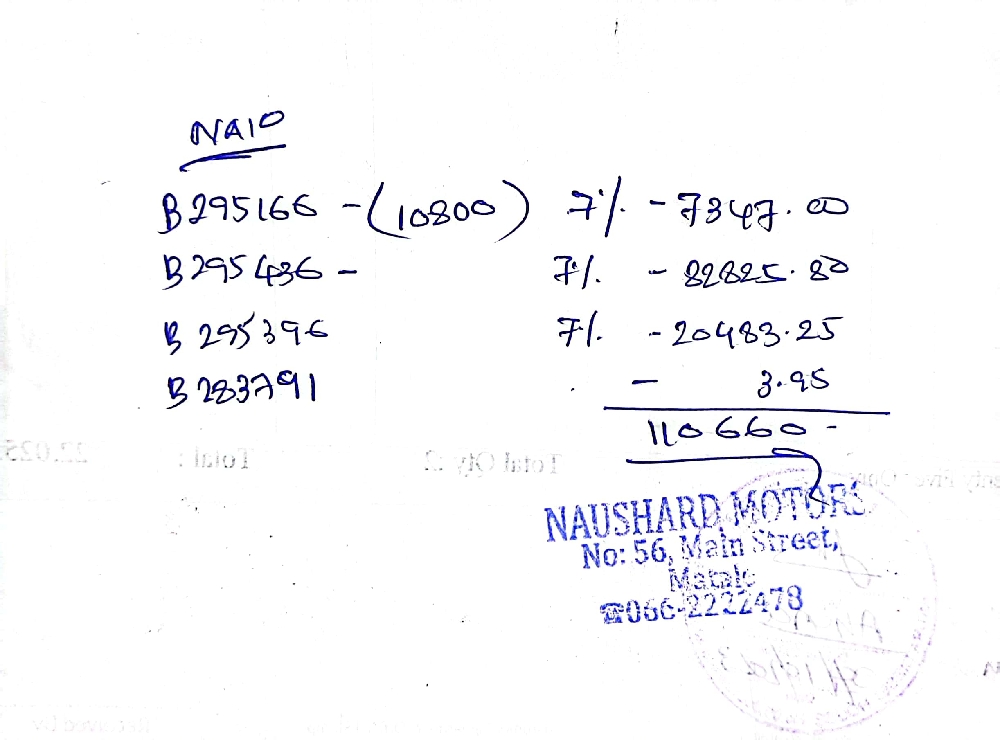 NA10
B295166 -(10800) 7% - 7347.00
B295436 - 7% - 82825.80
B 295396 7% - 20483.25
B 283791 - 3.95
110660 -
Total : Total Qty :2
NAUSHARD MOTORS
No: 56, Main Street,
Matale
☎066-2222478